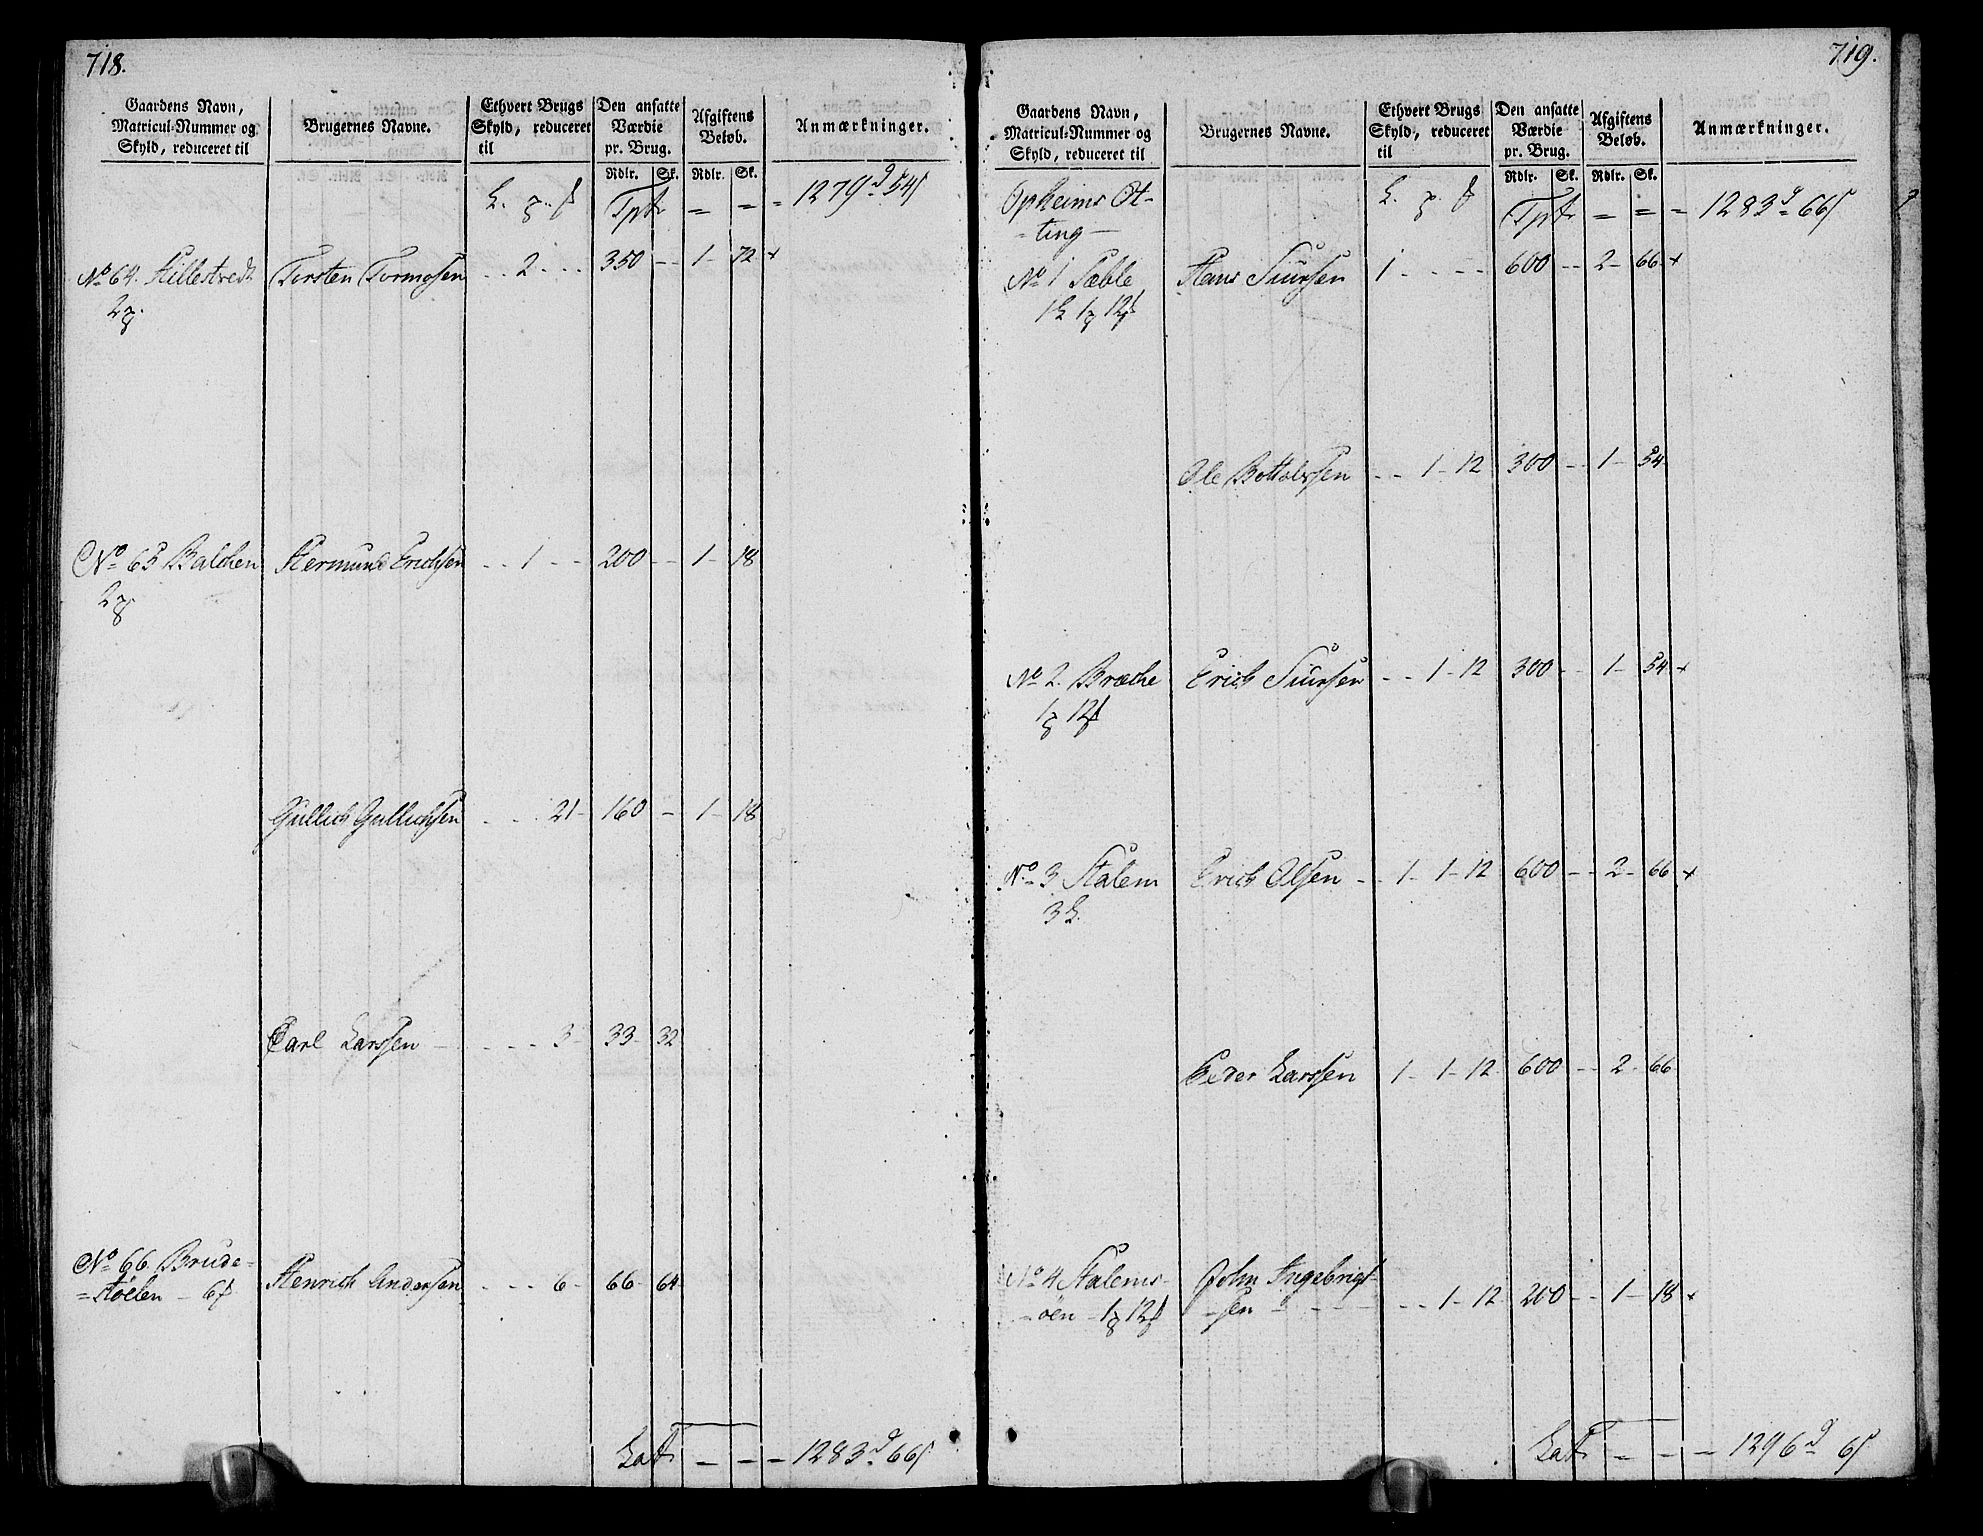 718.
Gaardens Navn, Matricul-Nummer og Skyld, reduceret til
Brugernes Navne.
Ethvert Brugs Skyld, reduceret til
Den ansatte Værdie pr. Brug.
Afgiftens Beløb.
Anmærkninger.
Rdlr. Sk. Rdlr. Sk.
Tpt = = = 1279 d 54 s
No 64. Hillestvedt Torsten Tormosen - - 2 - - - 350 - - 1 - 72 +
2
No 65 Balchen Hermund Erichsen - - 1 - - 200 - - 1 - 18
2
Gullich Gullichsen - - - 21 - 160 - 1 - 18
Carl Larssen - - - - - 3 - 33 - 32
No 66. Brude= Henrich Andersen - - - 6 - 66 - 64
=støelen - 6
Lat - - = 1283 d 66 s
719.
Gaardens Navn, Matricul-Nummer og Skyld, reduceret til
Brugernes Navne.
Ethvert Brugs Skyld, reduceret til
Den ansatte Værdie pr. Brug.
Afgiftens Beløb.
Anmærkninger.
Rdlr. Sk. Rdlr. Sk.
Opheims Ot-
Tpt = = = 1283 d 66 s
-ting-
No 1 Sæble Hans Siursen 1 - - - - 600 - - 2 - 66 +
1 L 1 12
Ole Bottolvsen - - 1 - 12 300 - - 1 - 54
No 2. Bræche Erich Siursen - - 1 - 12 300 - - 1 - 54 +
1 12
No 3 Stalem Erich Olsen - - 1 - 1 - 12 600 - - 2 - 66 +
3 L
Peder Larssen 1 - 1 - 12 600 - - 2 - 66
No 4 Stalems- John Ingebrigt-
-øen - 1 12 -sen - - - - - - 1 - 12 200 - - 1 - 18 +
Lat = - - 1296 d 6 s